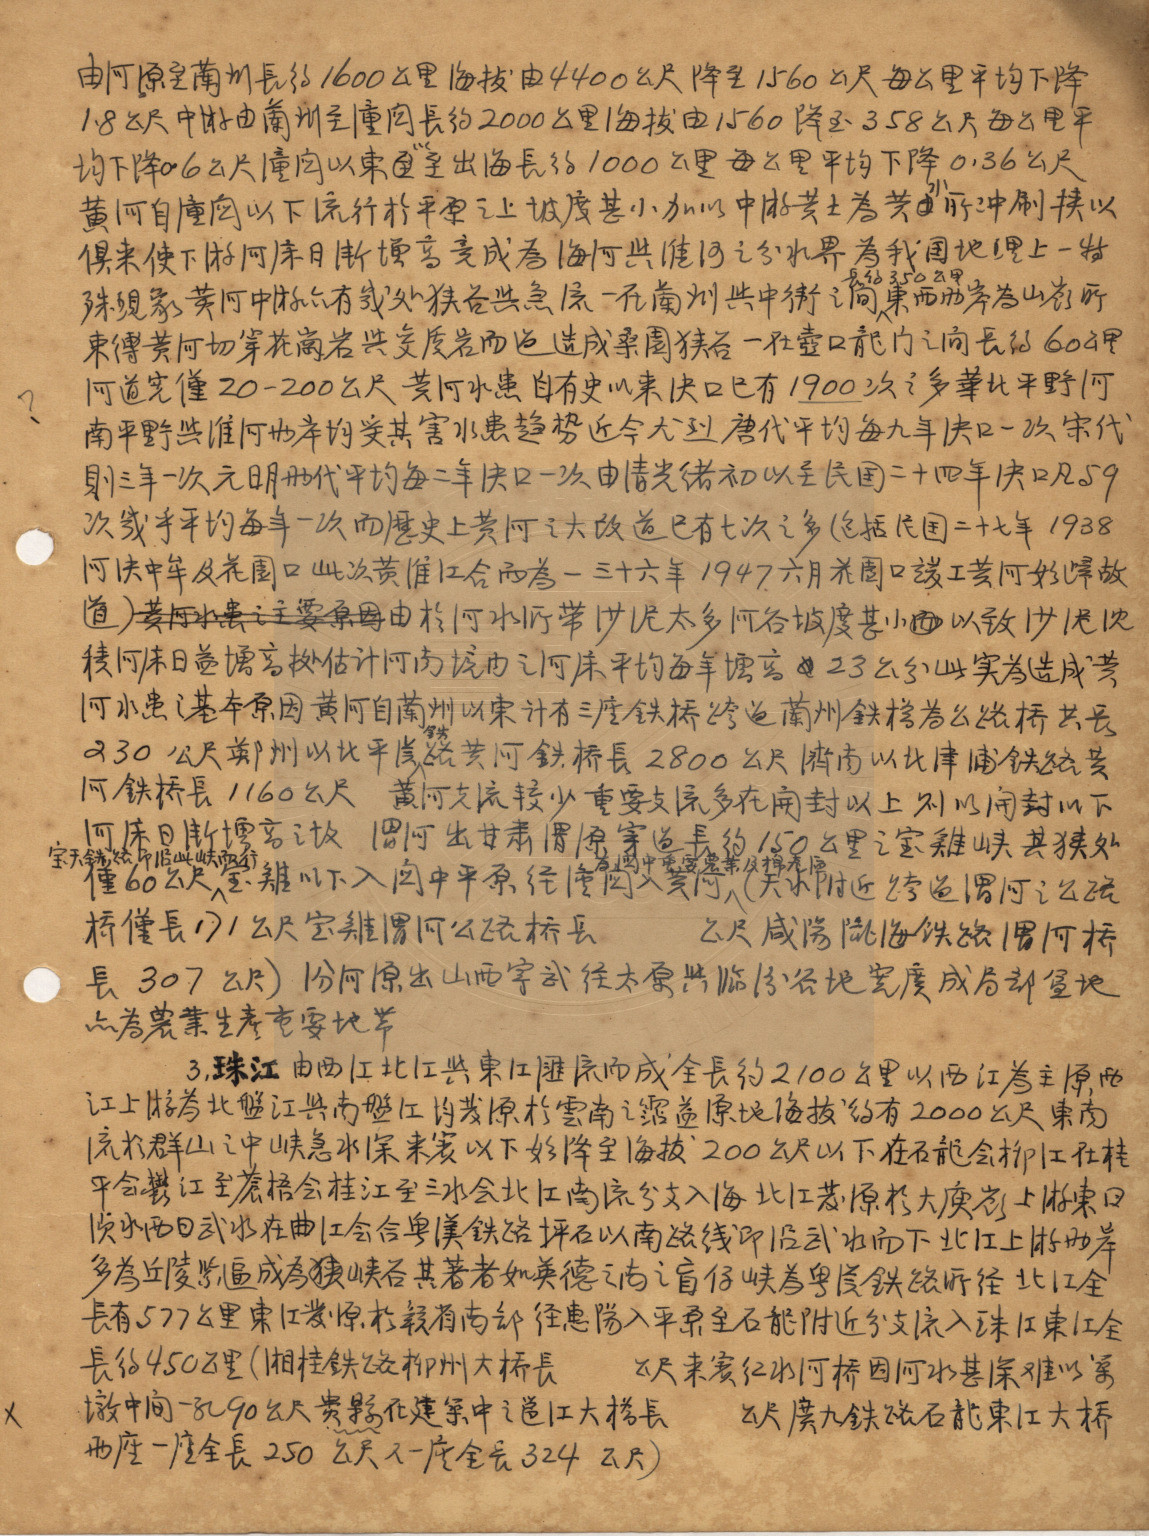 由河原至蘭州長約1600公里海拔由4400公尺降至1560公尺每公里平均下降
1.8公尺中游由蘭州至潼関長約2000公里海拔由1560降至358公尺每公里平
均下降0.6公尺潼関以東至出海長約1000公里每公里平均下降0.36公尺
黃河自潼関以下流行於平原之上坡度甚小加以中游黃土為黃水所冲刷挾以
俱來使下游河床日漸增高竟成為海河與淮河之分水界為我国地理上一特
長約350公里
殊現象黃河中游亦有幾处狹谷與急流一在蘭州與中衛之間東西兩岸為山嶺所
束縛黃河切穿花崗岩與变质岩而過造成桑園狹谷一在壺口龍门之间長約60公里
河道宽僅20-200公尺 黃河水患自有史以來决口已有1900次之多華北平野河
?
南平野與淮河兩岸均受其害水患趨勢近今尤烈唐代平均每九年决口一次宋代
則三年一次元明兩代平均每二年决口一次由清光緒初以至民国二十四年决口凡59
次幾乎平均每年一次而歷史上黃河之大改道已有七次之多(包括民国二十七年1938
河决中牟及花園口此次黃淮江合而為一三十六年1947六月花園口竣工黃河始歸故
道)黃河水患之主要原因由於河水所帶沙泥太多河谷坡度甚小以致沙泥沈
積河床日益增高據估計河南境内之河床平均每年增高23公分此实為造成黃
河水患之基本原因黃河自蘭州以東計有三座鉄橋跨過蘭州鉄橋為公路橋共長
鉄
230公尺鄭州以北平漢路黃河鉄橋長2800公尺濟南以北津浦鉄路黃
河鉄橋長1160公尺 黃河支流較少重要支流多在開封以上則以開封以下
河床日漸增高之故 渭河出甘肅渭原穿過長約150公里之宝雞峡其狹处
宝天鉄路即沿此峡而行 為関中重要農業及棉花區
僅60公尺宝雞以下入関中平原经潼関入黃河(天水附近跨過渭河之公路
橋僅長171公尺宝雞渭河公路橋長 公尺咸陽隴海鉄路渭河橋
長307公尺)汾河原出山西寧武经太原與臨汾各地宽廣成局部盆地
亦為農業生產重要地带
3.珠江由西江北江與東江匯流而成全長約2100公里以西江為主原西
江上游為北盤江與南盤江均發原於雲南之霑益原地海拔約有2000公尺東南
流於群山之中峡急水深來賓以下始降至海拔200公尺以下在石龍会柳江在桂
平会鬱江至蒼梧会桂江至三水会北江南流分支入海北江發原於大庾嶺上游東曰
浈水西曰武水在曲江会合粤漢鉄路坪石以南路线即沿武水而下北江上游兩岸
多為丘陵紧逼成為狹峡谷其著者如英德之南之盲仔峡為粤漢鉄路所经北江全
長有577公里東江發原於赣省南部经惠陽入平原至石龍附近分支流入珠江東江全
長約450公里(湘桂鉄路柳州大橋長 公尺來賓红水河橋因河水甚深难以築
X
墩中间一孔90公尺貴縣在建築中之鬱江大橋長 公尺廣九鉄路石龍東江大橋
兩座一座全長250公尺又一座全長324公尺)